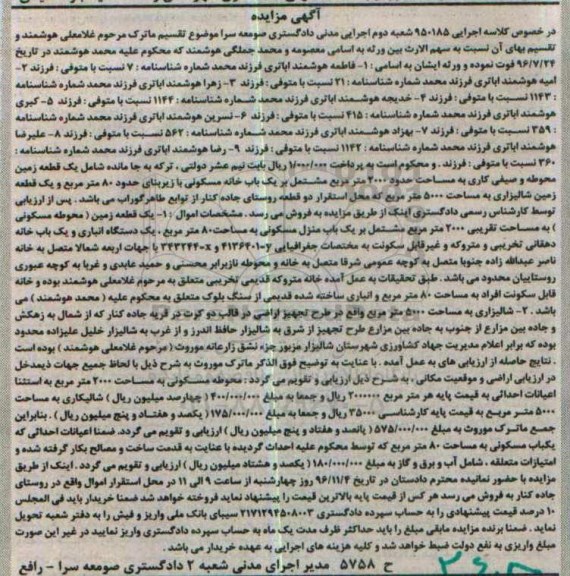 آگهی مزایده
در خصوص کلاسه اجرایی ۹۵۰۱۸۵ شعبه دوم اجرایی مدنی دادگستری صومعه سرا موضوع تقسیم ماترک مرحوم غلامعلی هوشمند و
تقسیم بهای آن نسبت به سهم الارث بین ورثه به اسامی معصومه و محمد جملگی هوشمند که محکوم علیه محمد هوشمند در تاریخ
۹۶/۷/۲۴ فوت نموده و ورثه ایشان به اسامی : ۱- فاطمه هوشمند اباتری فرزند محمد شماره شناسنامه : ۷ نسبت با متوفی : فرزند ۲-
امیه هوشمند اباتری فرزند محمد شماره شناسنامه : ۲۱ نسبت با متوفی : فرزند ۳- زهرا هوشمند اباتری فرزند محمد شماره شناسنامه
: ۱۱۴۳ نسبت با متوفی : فرزند ۴- خدیجه هوشمند اباتری فرزند محمد شماره شناسنامه : ۱۱۴۴ نسبت با متوفی : فرزند ۵- کبری
هوشمند اباتری فرزند محمد شماره شناسنامه : ۴۱۵ نسبت با متوفی : فرزند ۶- نسرین هوشمند اباتری فرزند محمد شماره شناسنامه
: ۳۵۹ نسبت با متوفی : فرزند ۷- بهزاد هوشمند اباتری فرزند محمد شماره شناسنامه : ۵۶۲ نسبت با متوفی : فرزند ۸- علیرضا
هوشمند اباتری فرزند محمد شماره شناسنامه : ۱۱۴۲ نسبت با متوفی : فرزند ۹- رضا هوشمند اباتری فرزند محمد شماره شناسنامه :
۳۶۰ نسبت با متوفی : فرزند . و محکوم است به پرداخت ۱/۰۰۰/۰۰۰ ریال بابت نیم عشر دولتی ، ترکه به جا مانده شامل یک قطعه زمین
محوطه و صیفی کاری به مساحت حدود ۲۰۰۰ متر مربع مشتمل بر یک باب خانه مسکونی با زیربنای حدود ۸۰ متر مربع و یک قطعه
زمین شالیزاری به مساحت ۵۰۰۰ متر مربع که محل استقرار دو قطعه روستای جاده کنار از توابع طاهرگوراب می باشد . پس از ارزیابی
توسط کارشناس رسمی دادگستری اینک از طریق مزایده به فروش می رسد . مشخصات اموال : ۱- یک قطعه زمین ( محوطه مسکونی
) به مساحت تقریبی ۲۰۰۰ متر مربع مشتمل بر یک باب منزل مسکونی به مساحت ۸۰ متر مربع ، یک دستگاه انباری و یک باب خانه
دهقانی تخریبی و متروکه و غیرقابل سکونت به مختصات جغرافیایی y-۴۱۳۶۴۰۱ و x-۳۴۳۲۴۴ با جهات اربعه شمالا متصل به خانه
ناصر عبدالله زاده جنوبا متصل به کوچه عمومی شرقا متصل به خانه و محوطه نازبرابر محسنی و حمید عابدی و غربا به کوچه عبوری
روستاییان محدود می باشد . طبق تحقیقات به عمل آمده خانه متروکه قدیمی تخریبی متعلق به مرحوم غلامعلی هوشمند بوده و خانه
قابل سکونت افراد به مساحت ۸۰ متر مربع و انباری ساخته شده قدیمی از سنگ بلوک متعلق به محکوم علیه ( محمد هوشمند ) می
باشد . ۲- شالیزاری به مساحت ۵۰۰۰ متر مربع واقع در طرح تجهیز اراضی در قالب دو کرت در قریه جاده کنار که از شمال به زهکش
و جاده بین مزارع از جنوب به جاده بین مزارع طرح تجهیز از شرق به شالیزار حافظ اندرز و از غرب به شالیزار خلیل علیزاده محدود
بوده که برابر اعلام مدیریت جهاد کشاورزی شهرستان شالیزار مزبور جزء نشق زارعانه موروث ( مرحوم غلامعلی هوشمند ) بوده است
. نتایج حاصله از ارزیابی های به عمل آمده . با عنایت به توضیح فوق الذکر ماترک موروث به شرح ذیل با لحاظ جمیع جهات ذیمدخل
در ارزیابی اراضی و موقعیت مکانی ، به شرح ذیل ارزیابی و تقویم می گردد : محوطه مسکونی به مساحت ۲۰۰۰ متر مربع به استثنا
اعیانات احداثی به قیمت پایه هر متر مربع ۲۰۰۰۰۰ ریال و جمعا به مبلغ ۴۰۰/۰۰۰/۰۰۰ ( چهارصد میلیون ریال ) شالیکاری به مساحت
۵۰۰۰ متر مربع به قیمت پایه کارشناسی ۳۵۰۰۰ ریال و جمعا به مبلغ ۱۷۵/۰۰۰/۰۰۰ ( یکصد و هفتاد و پنج میلیون ریال ) . بنابراین
جمع ماترک موروث به مبلغ ۵۷۵/۰۰۰/۰۰۰ ( پانصد و هفتاد و پنج میلیون ریال ) ارزیابی و تقویم می گردد. ضمنا اعیانات احداثی که
یکباب مسکونی به مساحت ۸۰ متر مربع که توسط محکوم علیه احداث گردیده با عنایت به قدمت ساخت و مصالح بکار گرفته شده و
امتیازات متعلقه ، شامل آب و برق و گاز به مبلغ ۱۸۰/۰۰۰/۰۰۰ ( یکصد و هشتاد میلیون ریال ) ارزیابی و تقویم می گردد . اینک از طریق
مزایده با حضور نماینده محترم دادستان در تاریخ ۹۶/۱۱/۴ روز چهارشنبه از ساعت ۹ الی ۱۱ در محل استقرار اموال واقع در روستای
جاده کنار به فروش می رسد هر کس از قیمت پایه بالاترین قیمت را پیشنهاد نماید فروخته خواهد شد ضمنا خریدار باید فی المجلس
۱۰ درصد قیمت پیشنهادی را به حساب سپرده دادگستری ۲۱۷۱۲۹۴۵۰۸۰۰۳ سیبای بانک ملی واریز و فیش را به دفتر شعبه تحویل
نماید . ضمنا برنده مزایده مابقی مبلغ را باید حداکثر ظرف مدت یک ماه به حساب سپرده دادگستری واریز نمایید در غیر این صورت
مبلغ واریزی به نفع دولت ضبط خواهد شد و کلیه هزینه های اجرایی به عهده خریدار می باشد .
ح ۵۷۵۸ مدیر اجرای مدنی شعبه ۲ دادگستری صومعه سرا - رافع